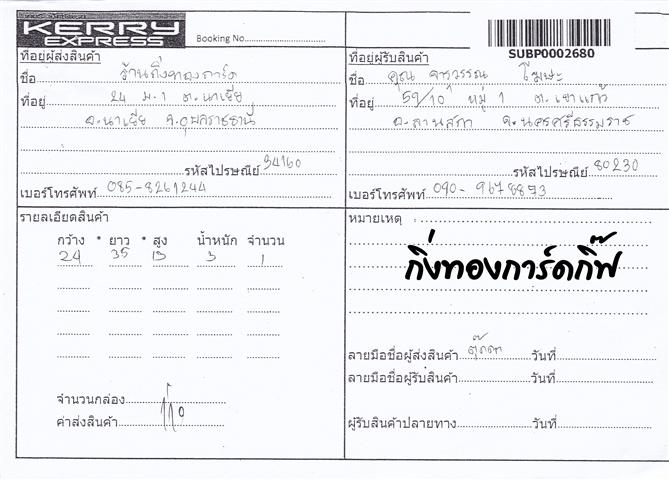 KERRY
EXPRESS
Booking No.
SUBP0002680
ที่อยู่ผู้ส่งสินค้า
ชื่อ ร้านกิ่งทองการ์ด
ที่อยู่ 24 ม.1 ต.นาเยีย
อ.นาเยีย จ.อุบลราชธานี
รหัสไปรษณีย์ 34160
เบอร์โทรศัพท์ 085-8261244
ที่อยู่ผู้รับสินค้า
ชื่อ คุณ จารุวรรณ โฆษะ
ที่อยู่ 59/10 หมู่ 1 ต.เขาแก้ว
อ.ลานสกา จ.นครศรีธรรมราช
รหัสไปรษณีย์ 80230
เบอร์โทรศัพท์ 090-9678893
รายละเอียดสินค้า
กว้าง * ยาว * สูง น้ำหนัก จำนวน
24 35 13 3 1
จำนวนกล่อง
ค่าส่งสินค้า 110
หมายเหตุ :
กิ่งทองการ์ดกิ๊ฟ
ลายมือชื่อผู้ส่งสินค้า ตุ๊กตา วันที่
ลายมือชื่อผู้รับสินค้า วันที่
ผู้รับสินค้าปลายทาง วันที่